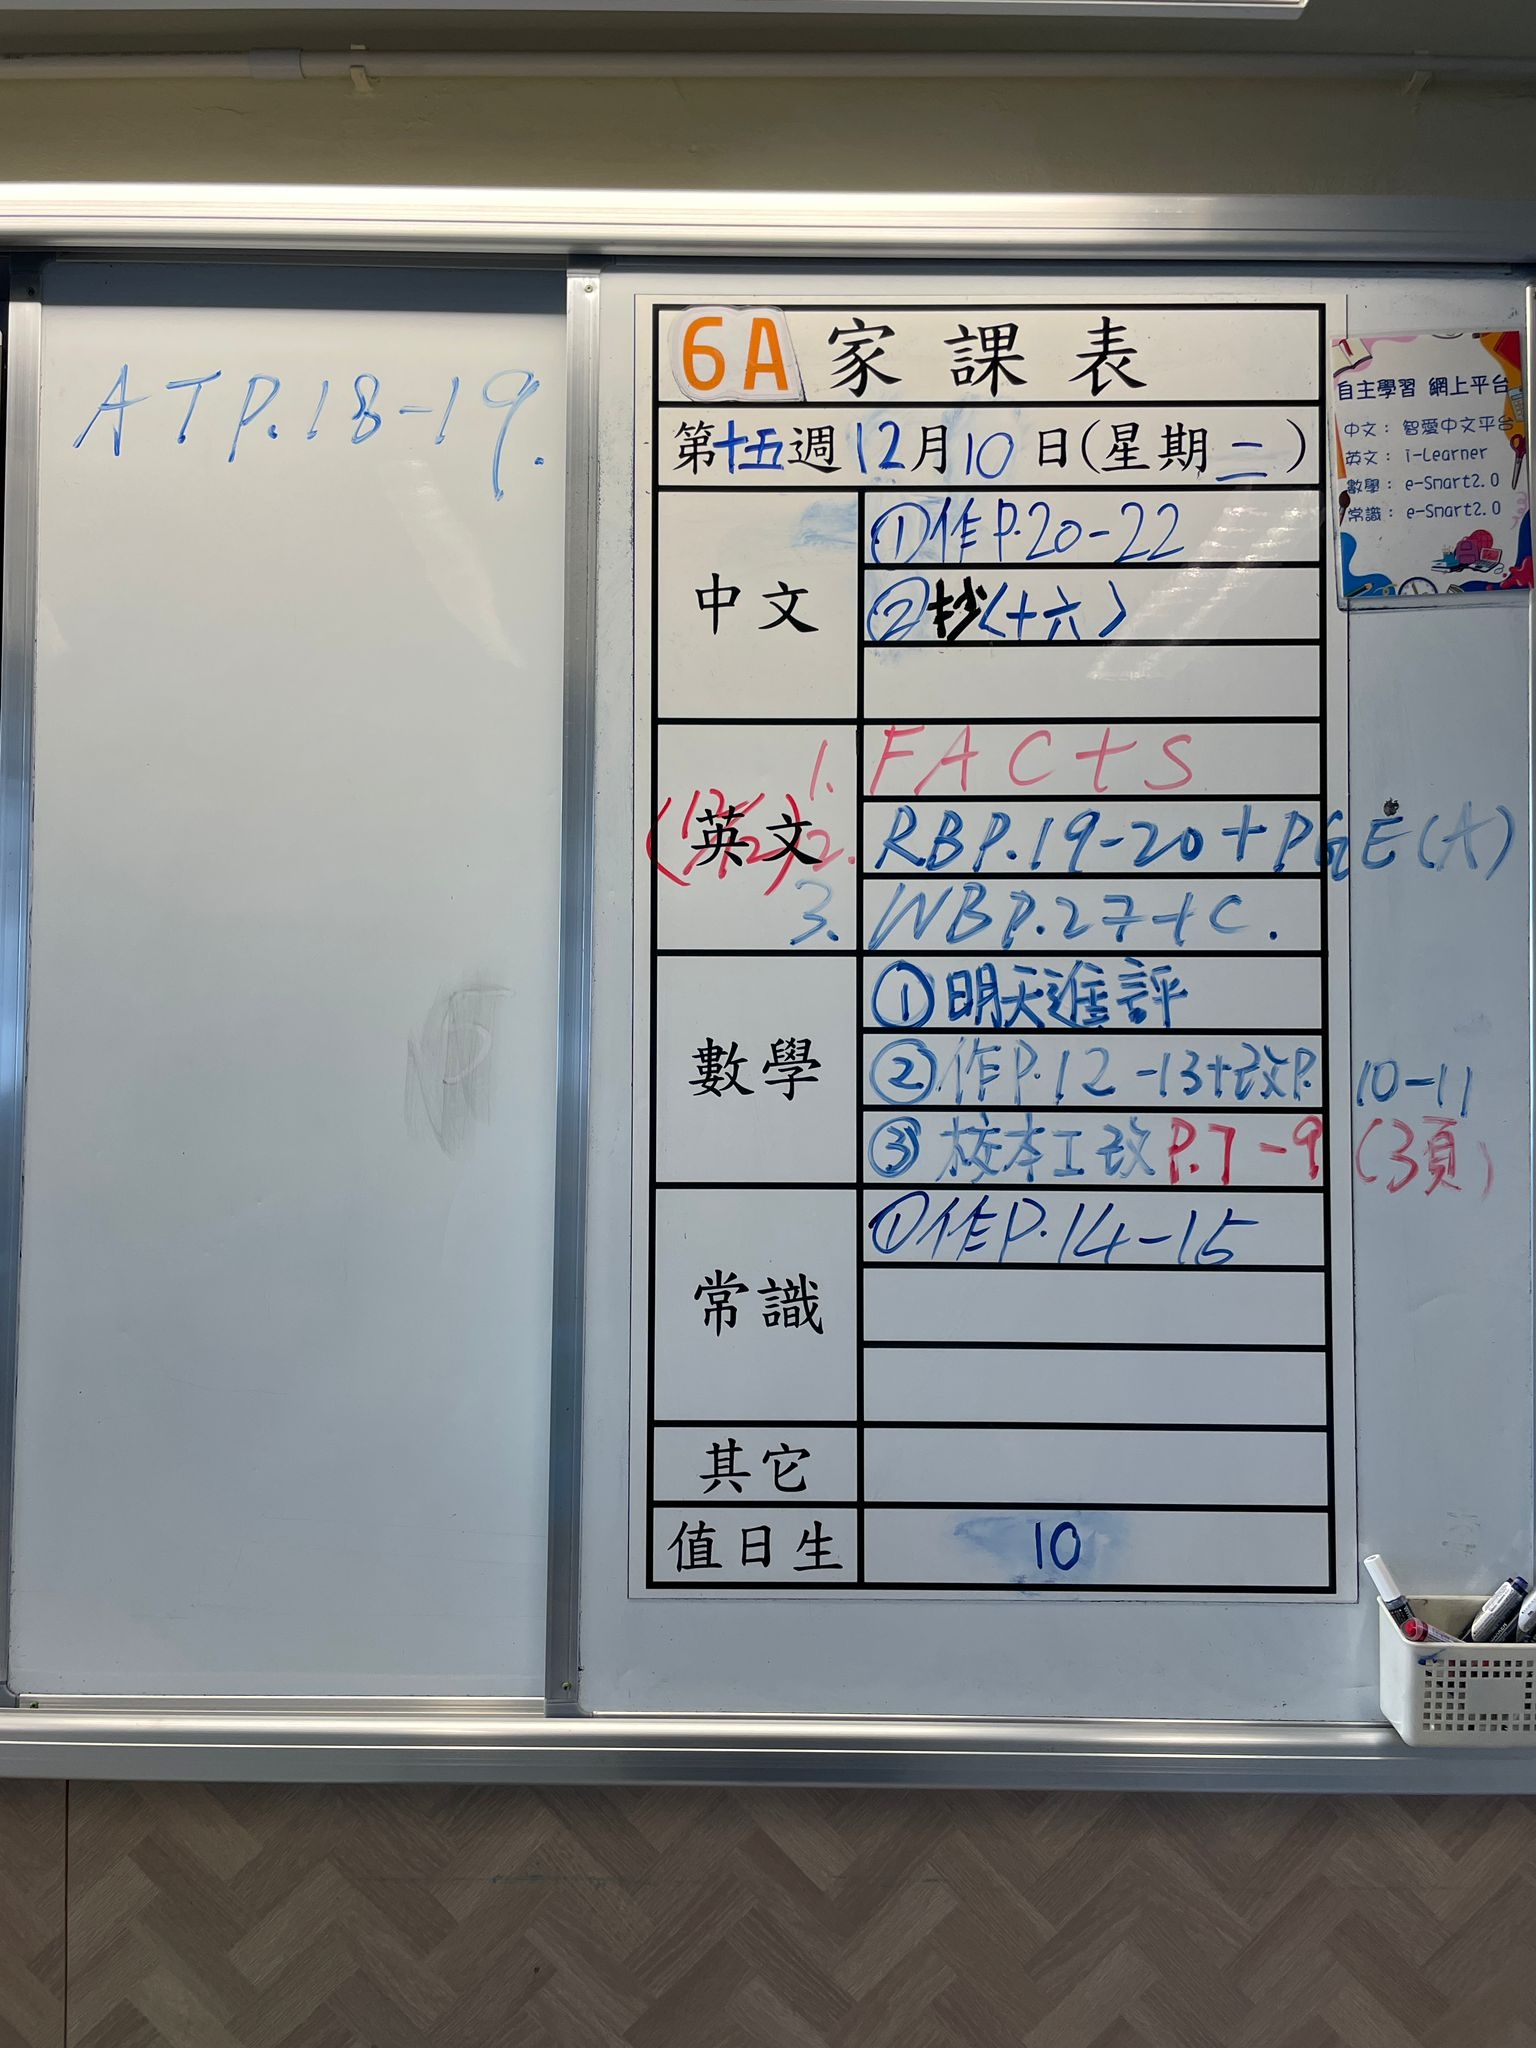 ATP.18-19.
6A 家課表
第十五週12月10日(星期二)
中文
①作P.20-22
②抄〈十六〉
英文
1. FACTS
2. RBP.19-20+PGE(A)
3. WBP.27+C.
數學
①明天進評
②作P.12-13+改P.10-11
③校本工改P.7-9(3頁)
常識
①作P.14-15
其它
值日生
10
自主學習 網上平台
中文：智愛中文平台
英文：i-Learner
數學：e-Smart2.0
常識：e-Smart2.0